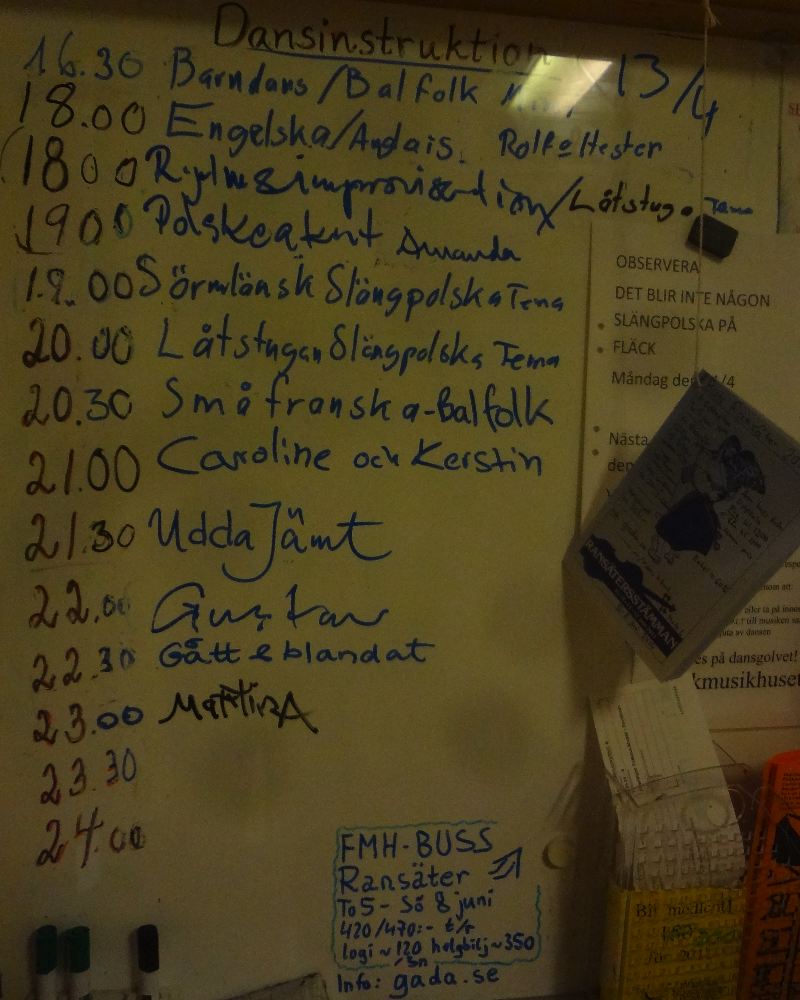 Dansinstruktion 13/4
16.30 Barndans/Balfolk
18.00 Engelska/Anglais. Rolf o Hester
1800 Rytm & improvisation/Låtstuga Tema
1900 Polska Amanda
19.00 Sörmlänsk Slängpolska Tema
20.00 Låtstugan Slängpolska Tema
20.30 Småfranska-Balfolk
21.00 Caroline och Kerstin
21.30 Udda Jämt
22.00 Gustav
22.30 Gått & blandat
23.00 Martina
23.30
24.00
FMH-BUSS
Ransäter
To 5 - Sö 8 juni
420/470:- t/r
logi ~ 120 helgbilj ~ 350
Info: gada.se
OBSERVERA
DET BLIR INTE NÅGON
SLÄNGPOLSKA PÅ
FLÄCK
Måndag
Nästa
RANSÄTERSSTÄMMAN
eller ta på
till musiken
av dansen
på dansgolvet!
kmusikhuset
Bli medlem!